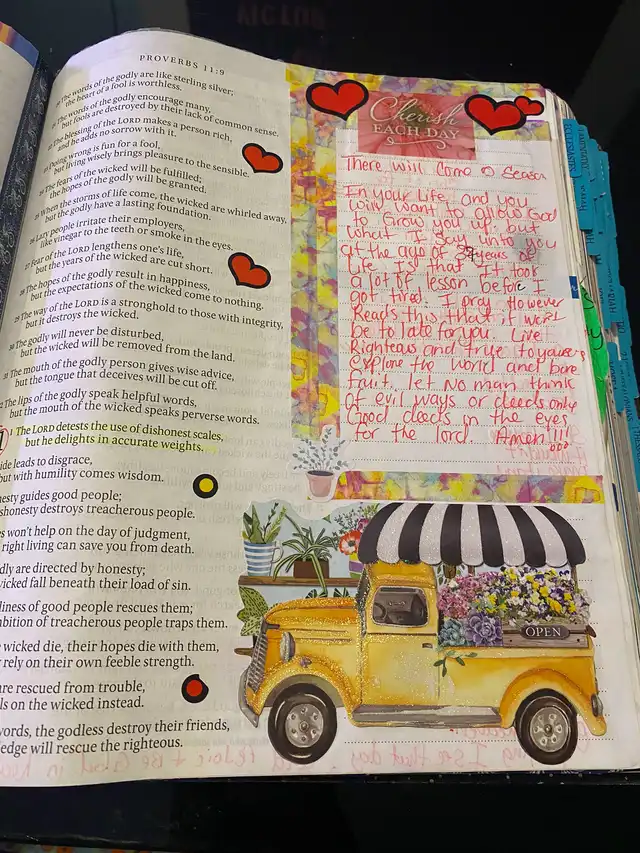 PROVERBS 11:9
20 The words of the godly are like sterling silver;
the heart of a fool is worthless.
21 The words of the godly encourage many,
but fools are destroyed by their lack of common sense.
22 The blessing of the LORD makes a person rich,
and he adds no sorrow with it.
23 Doing wrong is fun for a fool,
but living wisely brings pleasure to the sensible.
24 The fears of the wicked will be fulfilled;
the hopes of the godly will be granted.
25 When the storms of life come, the wicked are whirled away,
but the godly have a lasting foundation.
26 Lazy people irritate their employers,
like vinegar to the teeth or smoke in the eyes.
27 Fear of the LORD lengthens one's life,
but the years of the wicked are cut short.
28 The hopes of the godly result in happiness,
but the expectations of the wicked come to nothing.
29 The way of the LORD is a stronghold to those with integrity,
but it destroys the wicked.
30 The godly will never be disturbed,
but the wicked will be removed from the land.
31 The mouth of the godly person gives wise advice,
but the tongue that deceives will be cut off.
32 The lips of the godly speak helpful words,
but the mouth of the wicked speaks perverse words.
1 The LORD detests the use of dishonest scales,
but he delights in accurate weights.
ide leads to disgrace,
but with humility comes wisdom.
nesty guides good people;
ishonesty destroys treacherous people.
s won't help on the day of judgment,
right living can save you from death.
dly are directed by honesty;
wicked fall beneath their load of sin.
dliness of good people rescues them;
mbition of treacherous people traps them.
wicked die, their hopes die with them,
rely on their own feeble strength.
are rescued from trouble,
ls on the wicked instead.
words, the godless destroy their friends,
edge will rescue the righteous.
Cherish
EACH DAY
There will Come a Season
In your life, and you
will want to allow God
to Grow you up. but
what I Say unto you
at the age of 39 years of
life is that it took
a lot of lesson before I
got tired. I pray However
Reads this that it wont
be to late for you. Live
Righteous and true to yourself
explore the World and bare
fruit. let no man think
of evil ways or deeds only
Good deeds in the eyes
for the lord. Amen!!!
OPEN